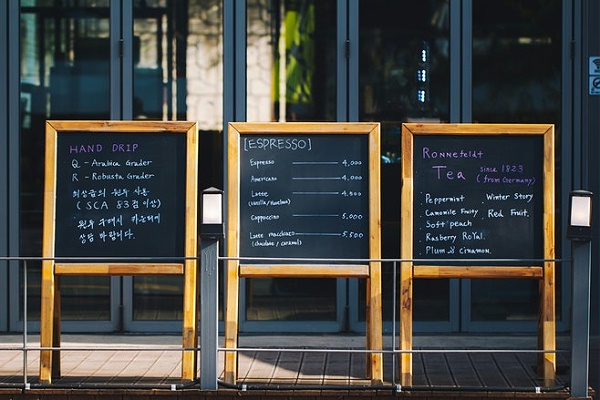 HAND DRIP
Q - Arabica Grader
R - Robusta Grader
최상급의 원두 사용
(SCA 83점 이상)
원두 구매시 카운터에
상담 바랍니다.
[ESPRESSO]
Espresso 4,000
Americano 4,000
Latte 4,500
(vanilla/hazelnut)
Cappuccino 5,000
Latte macchiato 5,500
(chocolate / caramel)
Ronnefeldt
Tea since 1823
(from Germany)
Peppermint . Winter Story
Camomile Fruity . Red Fruit.
Soft peach
Rasberry RoYal.
Plum & cinnamon.